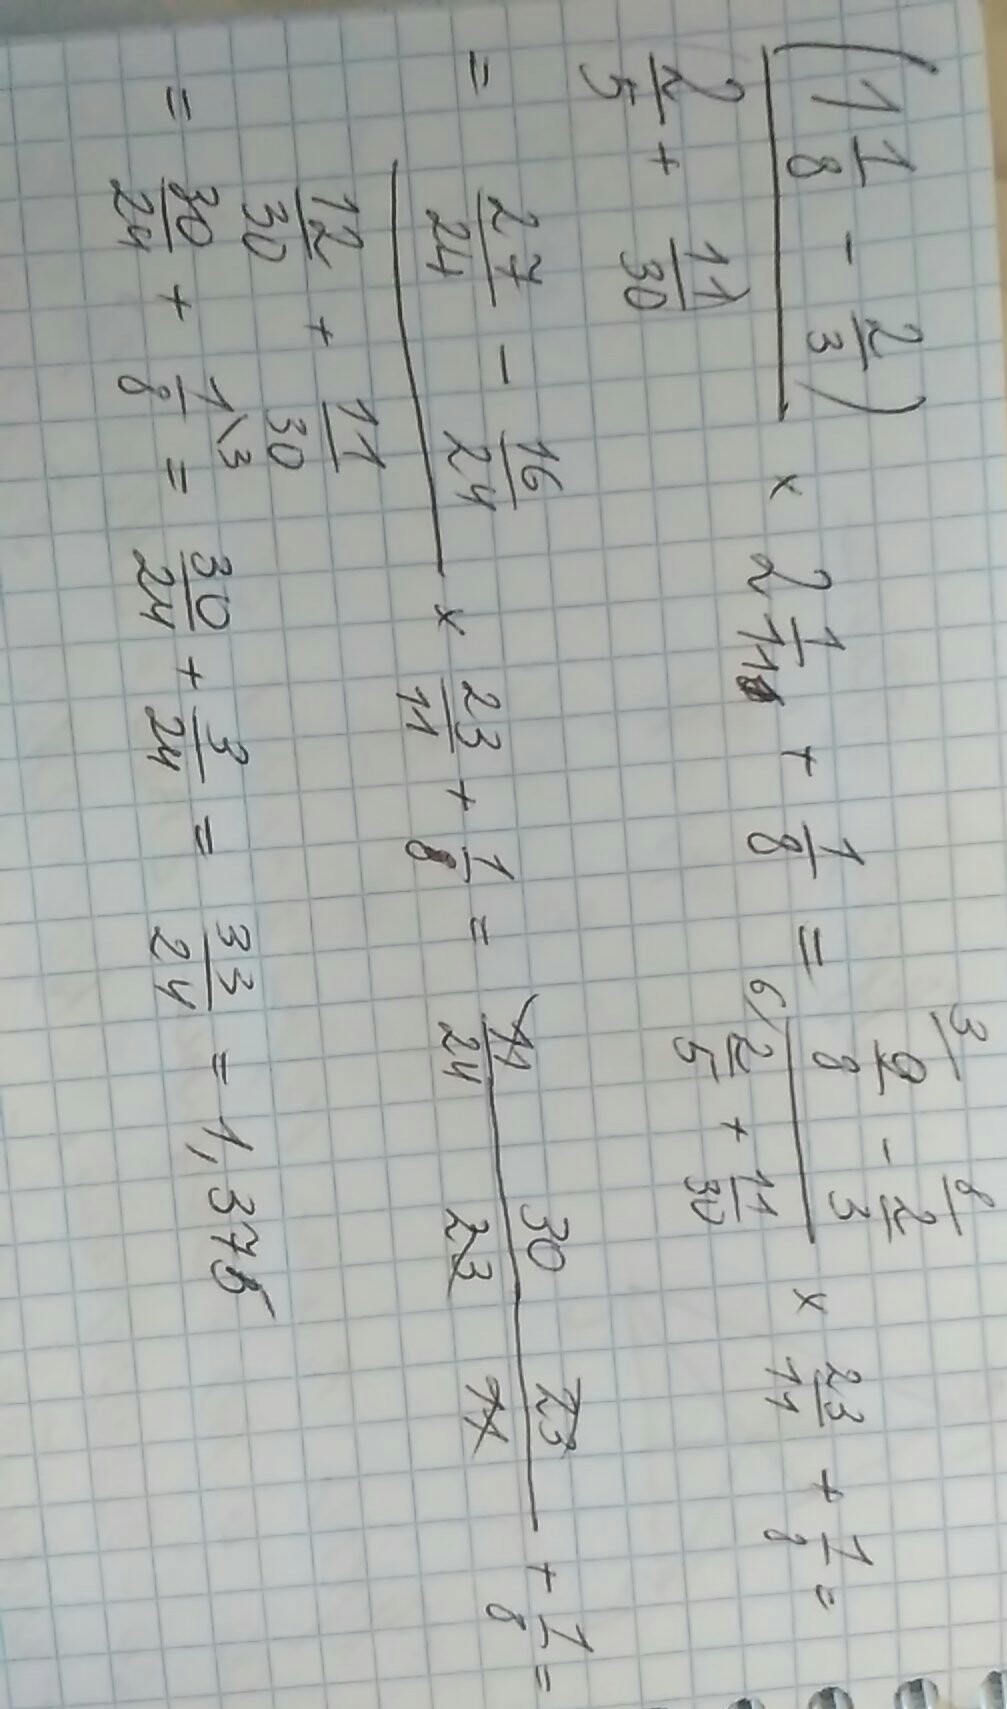 (1 1/8 - 2/3) / (2/5 + 11/30) × 2 1/11 + 1/8 = (3/ 9/8 - 8/ 2/3) / (6/ 2/5 + 11/30) × 23/11 + 1/8 =
= (27/24 - 16/24) / (12/30 + 11/30) × 23/11 + 1/8 = 11/24 30/23 23/11 + 1/8 =
= 30/24 + 1\3/8 = 30/24 + 3/24 = 33/24 = 1,375